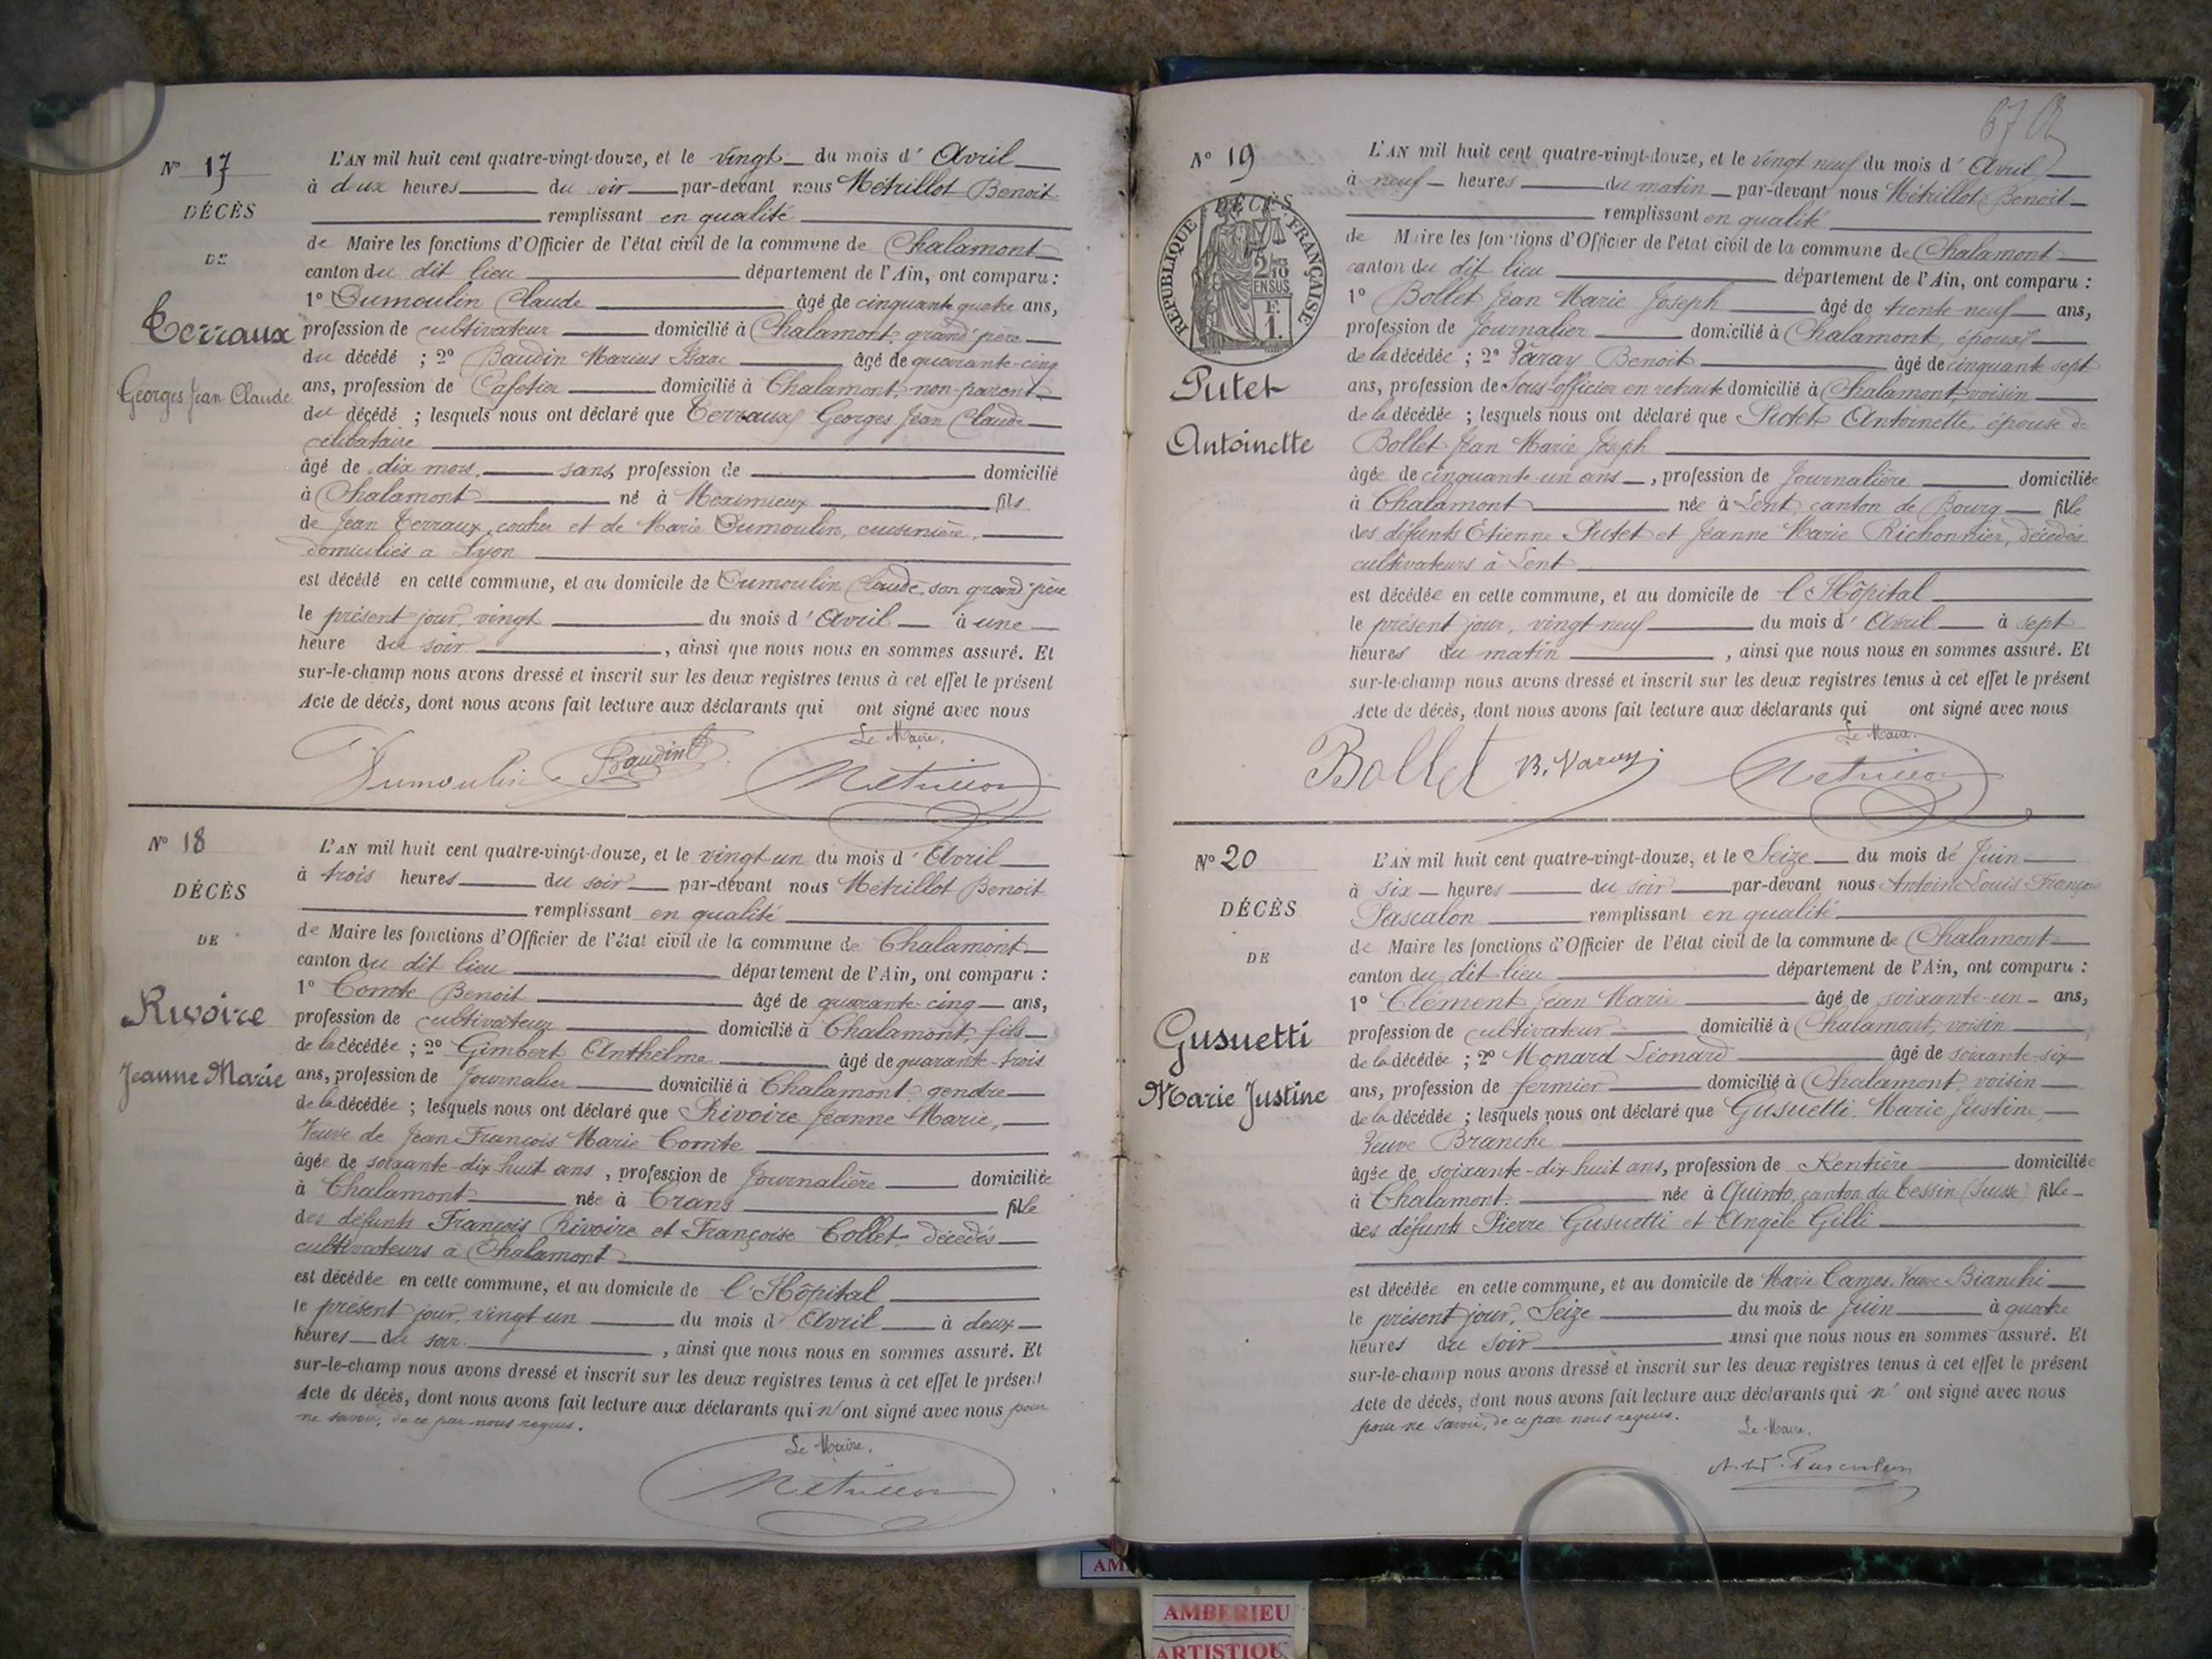 N° 17
DÉCÈS
DE
Terraux
Georges Jean Claude
L'AN mil huit cent quatre-vingt-douze, et le vingt du mois d'Avril
à deux heures du soir par-devant nous Métrillot Benoit
remplissant en qualité
de Maire les fonctions d'Officier de l'état civil de la commune de Chalamont
canton du dit lieu département de l'Ain, ont comparu :
1° Dumoulin Claude âgé de cinquante quatre ans,
profession de cultivateur domicilié à Chalamont, grand'père
du décédé ; 2° Baudin Marius Isaac âgé de quarante-cinq
ans, profession de Cafetier domicilié à Chalamont, non-parent
du décédé ; lesquels nous ont déclaré que Terraux Georges Jean Claude
célibataire
âgé de dix mois, sans profession de domicilié
à Chalamont né à Meximieux fils
de Jean Terraux, cocher et de Marie Dumoulin, cuisinière,
domiciliés à Lyon
est décédé en cette commune, et au domicile de Dumoulin Claude, son grand'père
le présent jour, vingt du mois d'Avril à une
heure du soir, ainsi que nous nous en sommes assuré. Et
sur-le-champ nous avons dressé et inscrit sur les deux registres tenus à cet effet le présent
Acte de décès, dont nous avons fait lecture aux déclarants qui ont signé avec nous
Le Maire,
Dumoulin Baudin Métrillot
N° 18
DÉCÈS
DE
Rivoire
Jeanne Marie
L'AN mil huit cent quatre-vingt-douze, et le vingt-un du mois d'Avril
à trois heures du soir par-devant nous Métrillot Benoit
remplissant en qualité
de Maire les fonctions d'Officier de l'état civil de la commune de Chalamont
canton du dit lieu département de l'Ain, ont comparu :
1° Comte Benoit âgé de quarante-cinq ans,
profession de cultivateur domicilié à Chalamont, fils
de la décédée ; 2° Gimbert Anthelme âgé de quarante-trois
ans, profession de Journalier domicilié à Chalamont gendre
de la décédée ; lesquels nous ont déclaré que Rivoire Jeanne Marie,
Veuve de Jean François Marie Comte
âgée de soixante-dix huit ans, profession de Journalière domiciliée
à Chalamont née à Crans fille
des défunts François Rivoire et Françoise Collet, décédés
cultivateurs à Chalamont
est décédée en cette commune, et au domicile de l'Hôpital
le présent jour, vingt un du mois d'Avril à deux
heures du soir, ainsi que nous nous en sommes assuré. Et
sur-le-champ nous avons dressé et inscrit sur les deux registres tenus à cet effet le présent
Acte de décès, dont nous avons fait lecture aux déclarants qui n'ont signé avec nous pour
ne savoir, de ce par nous requis.
Le Maire,
Métrillot
67
N° 19
DÉCÈS
RÉPUBLIQUE FRANÇAISE
2/10 EN SUS
F. 1.
Putet
Antoinette
L'AN mil huit cent quatre-vingt-douze, et le vingt neuf du mois d'Avril
à neuf heures du matin par-devant nous Métrillot Benoit
remplissant en qualité
de Maire les fonctions d'Officier de l'état civil de la commune de Chalamont
canton du dit lieu département de l'Ain, ont comparu :
1° Bollet Jean Marie Joseph âgé de trente-neuf ans,
profession de Journalier domicilié à Chalamont, époux
de la décédée ; 2° Varay Benoit âgé de cinquante sept
ans, profession de Sous-officier en retraite domicilié à Chalamont, voisin
de la décédée ; lesquels nous ont déclaré que Putet Antoinette, épouse de
Bollet Jean Marie Joseph
âgée de cinquante-un ans, profession de Journalière domiciliée
à Chalamont née à Lent canton de Bourg fille
des défunts Étienne Putet et Jeanne Marie Richonnier, décédés
cultivateurs à Lent
est décédée en cette commune, et au domicile de l'Hôpital
le présent jour, vingt-neuf du mois d'Avril à sept
heures du matin, ainsi que nous nous en sommes assuré. Et
sur-le-champ nous avons dressé et inscrit sur les deux registres tenus à cet effet le présent
Acte de décès, dont nous avons fait lecture aux déclarants qui ont signé avec nous
Le Maire.
Bollet B. Varay Métrillot
N° 20
DÉCÈS
DE
Gusuetti
Marie Justine
L'AN mil huit cent quatre-vingt-douze, et le Seize du mois de Juin
à six heures du soir par-devant nous Antoine Louis François
Pascalon remplissant en qualité
de Maire les fonctions d'Officier de l'état civil de la commune de Chalamont
canton du dit lieu département de l'Ain, ont comparu :
1° Clément Jean Marie âgé de soixante-un ans,
profession de cultivateur domicilié à Chalamont, voisin
de la décédée ; 2° Monard Léonard âgé de soixante-six
ans, profession de fermier domicilié à Chalamont, voisin
de la décédée ; lesquels nous ont déclaré que Gusuetti Marie Justine
Veuve Branche
âgée de soixante-dix huit ans, profession de Rentière domiciliée
à Chalamont. née à Quinto, canton du Tessin (Suisse) fille
des défunts Pierre Gusuetti et Angèle Gilli
est décédée en cette commune, et au domicile de Marie Cames, Veuve Bianchi
le présent jour, Seize du mois de Juin à quatre
heures du soir ainsi que nous nous en sommes assuré. Et
sur-le-champ nous avons dressé et inscrit sur les deux registres tenus à cet effet le présent
Acte de décès, dont nous avons fait lecture aux déclarants qui n'ont signé avec nous
pour ne savoir, de ce par nous requis.
Le Maire,
A. L. F. Pascalon
AMBERIEU
ARTISTIQU